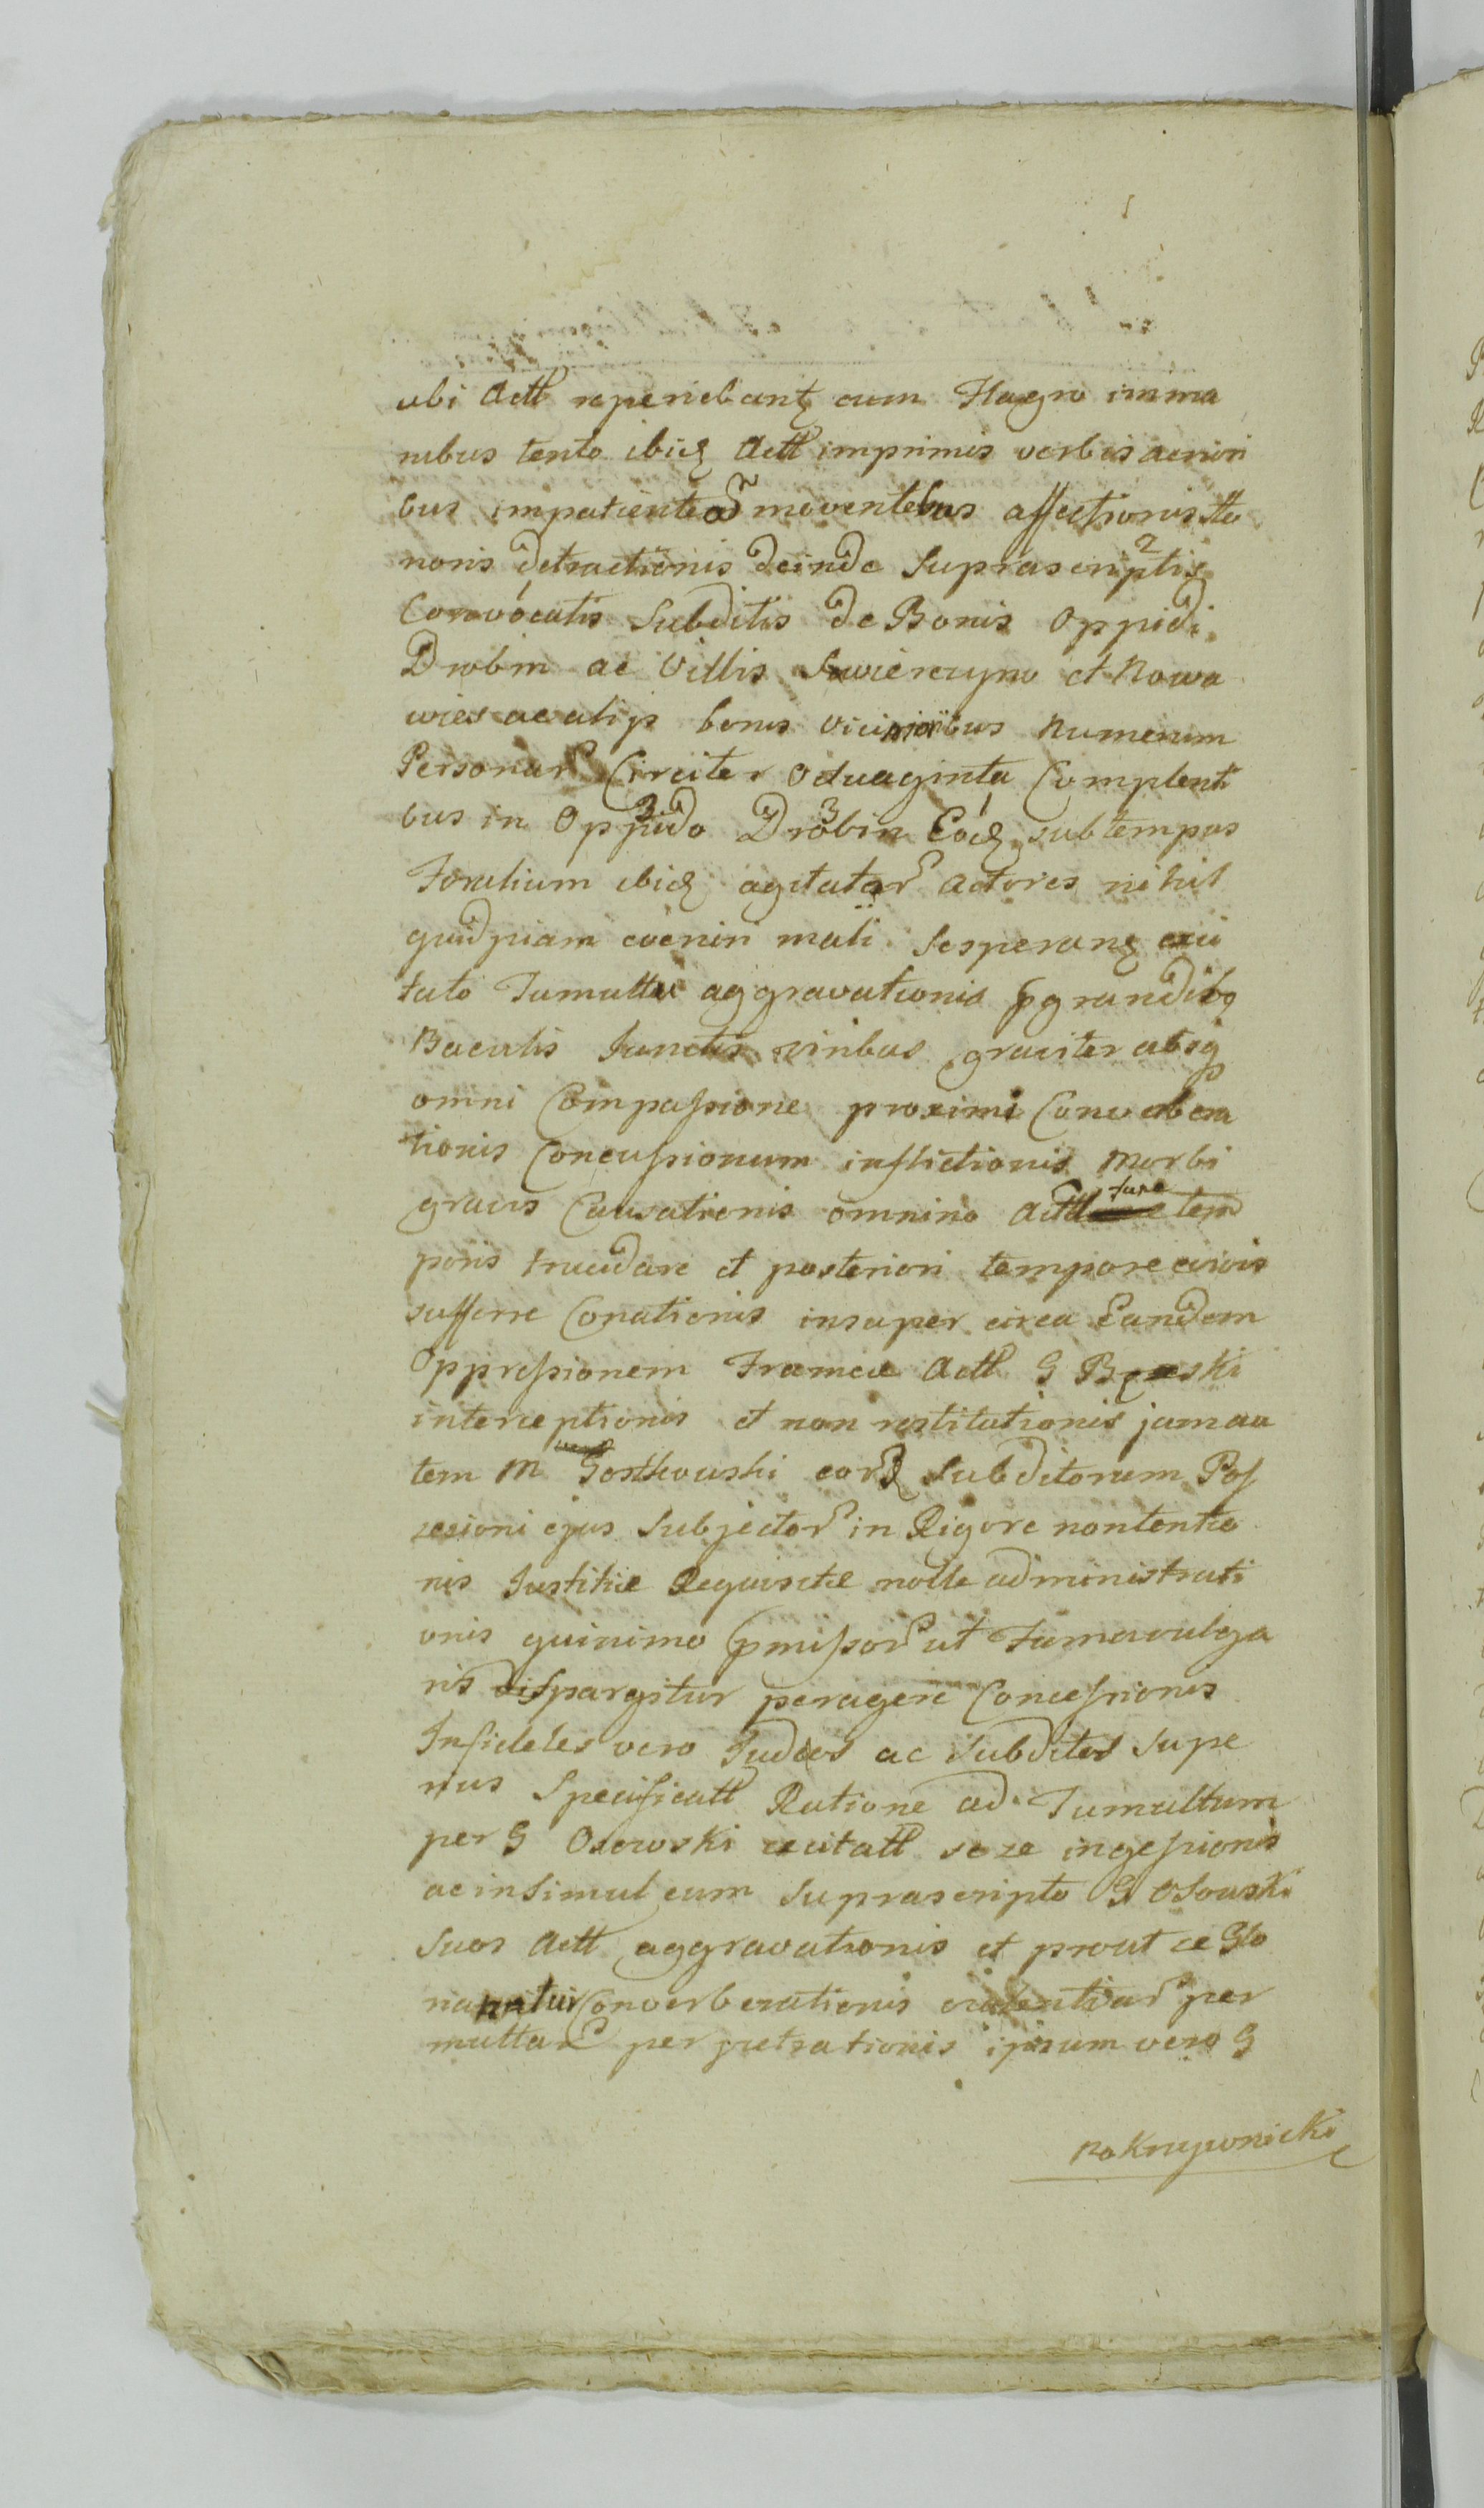 ubi Actt reperiebant cum Flagro imma
nibus tento ibid Actt imprimis verbis acriori
bus impatientiae moventibus affectionis Ho
noris detractionis deinde suprascriptis
Convocatis Subditis de Bonis Oppidi
Drobin ac Villis Swierczyno et Nowa
wies ac alijs bonis vicinioribus numerum
Personar Circiter Octuaginta Complenti
bus in Oppido Drobin Eod sub tempus
Foralium ibid agitator actores nihil
quidpiam eveniri mali sesperan exci
tato Tumultu aggravationis pgrandibq
Baculis Junctis viribus graviter absq
omni Compassione proximi Converbera
tionis Concussionum inflictionis Morbi
gravis Causationis omnino Actt tunc tem
poris trucidare et posteriori tempore e vivis
sufferre Conationis insuper circa Eandem
Oppressionem Frameae Actt G
interceptionis et non restitutionis jam au
tem M vero Gostkowski eord Subditorum Pos
sesioni ejus Subjector in Rigore nontentio
nis Justitiae Requisitae nolle administrati
onis quinimo pmissor ut Fama vulga
ris dispargitur peragere Concessionis
Infideles vero Judeos ac Subditos supe
rius Specificatt Ratione ad Tumultum
per G Osowski excitatt seze ingessionis
ac insimul cum suprascripto G Osowski
suos Actt aggravationis et prout ce Glo
naruntur Converberationis violentiar per
multar perpetrationis ipsum vero G
Pokrzywnicki